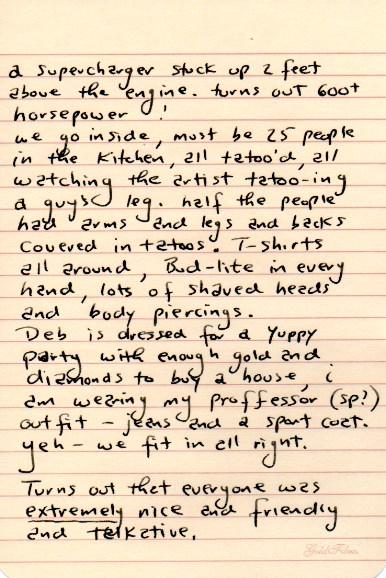 a supercharger stuck up 2 feet
above the engine. turns out 600+
horsepower!
we go inside, must be 25 people
in the kitchen, all tatoo'd, all
watching the artist tatoo-ing
a guys leg. half the people
had arms and legs and backs
covered in tatoos. T-shirts
all around, Bud-lite in every
hand, lots of shaved heads
and body piercings.
Deb is dressed for a Yuppy
party with enough gold and
diamonds to buy a house, i
am wearing my proffessor (sp?)
outfit - jeans and a sport coat.
yeh - we fit in all right.
Turns out that everyone was
extremely nice and friendly
and talkative.